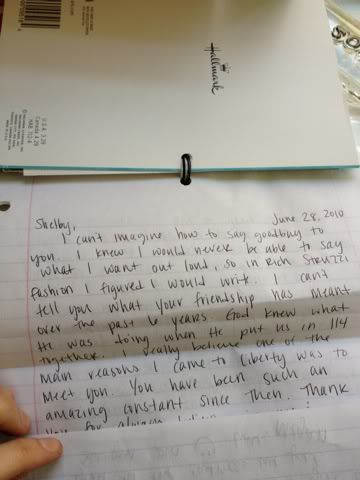 Hallmark
U.S.A. 3.29
Canada 4.29
MADE IN U.S.A.
Shelby,
June 28, 2010
I can't imagine how to say goodbye to
you. I knew I would never be able to say
what I want out loud, so in Rich Struzzi
fashion I figured I would write. I can't
tell you what your friendship has meant
over the past 6 years. God knew what
He was doing when He put us in 114
together. I really believe one of the
main reasons I came to Liberty was to
meet you. You have been such an
amazing constant since then. Thank
you for always